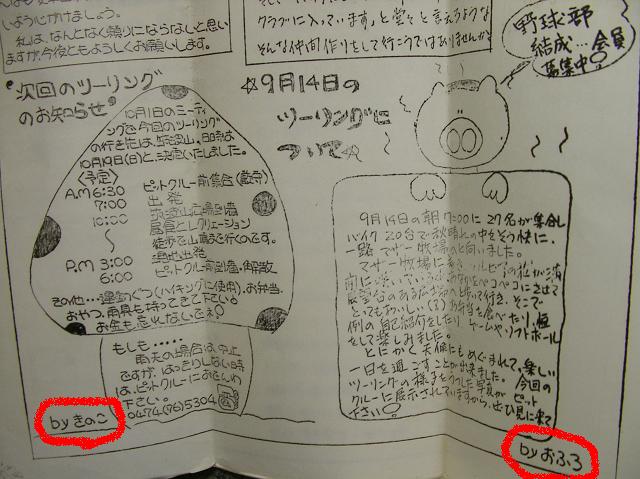 いようにかけましょう。
私は、なんとなく頼りにならないと思い
ますが、今後ともようしくお願いします。
クラブに入っています」と堂々と言えるような
そんな仲間作りをして行こうではありませんか
野球部
結成…会員
募集中!
"次回のツーリング
のお知らせ"
10月1日のミーティ
ングで今回のツーリング
の行き先は、筑波山、日時は
10月19日(日)と決定いたしました。
〈予定〉
A.M 6:30 ピットクルー前集合(厳守)
7:00 出発
10:00 筑波山広場到着
昼食とレクリェーション
徒歩で山頂まで行くのです。
P.M 3:00 現地出発
6:00 ピットクルー前到着・解散
その他…運動ぐつ(ハイキングに使用)、お弁当、
おやつ、雨具も持ってきて下さい!
お金も忘れないでネ!
もしも……
雨天の場合は中止
ですが、はっきりしない時
は、ピットクルーにおでんわ
下さい。
0474(76)5304
by きのこ
☆9月14日の
ツーリングに
ついて☆
9月14日の朝7:00に27名が集合し
バイク20台で秋晴れの中をそう快に、
一路マザー牧場へと向いました。
マザー牧場に着き、
前に
展望台のある広場へと行き、そこで
とてもおいしい(?)お弁当を食べたり、恒
例の自己紹介をしたりゲームやソフトボール
をして楽しみました。
とにかく天候にもめぐまれて、楽しい
一日を過ごすことが出来ました。今回の
ツーリングの様子をうつした写真がピット
クルーに展示されていますから、ぜひ見に来て
下さい!
by おふろ